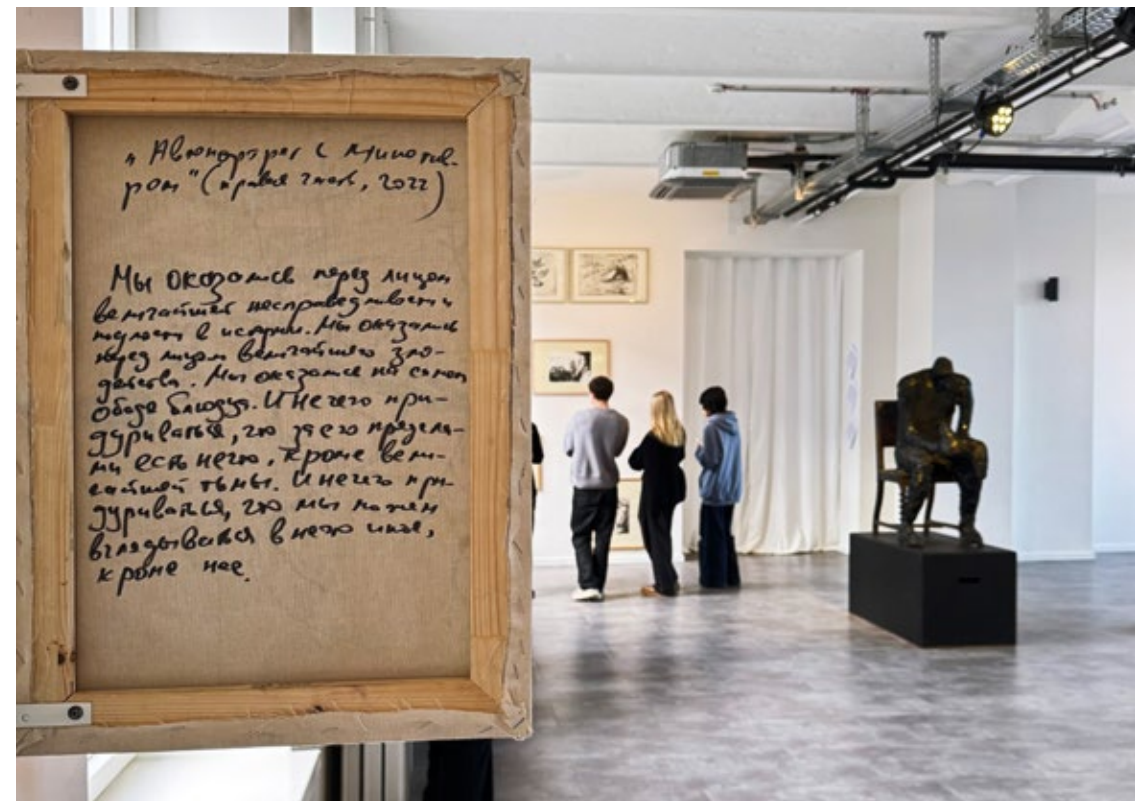 „Автопортрет с Минотав-
ром" (правая часть, 2022)
Мы оказались перед лицом
величайшей несправедливости и
подлости в истории. Мы оказались
перед лицом величайшего зло-
действа. Мы оказались на самом
ободе блюдца. И нечего при-
дуриваться, что за его предела-
ми есть нечто, кроме вели-
чайшей тьмы. И нечего при-
дуриваться, что мы можем
вглядываться в нечто иное,
кроме нее.